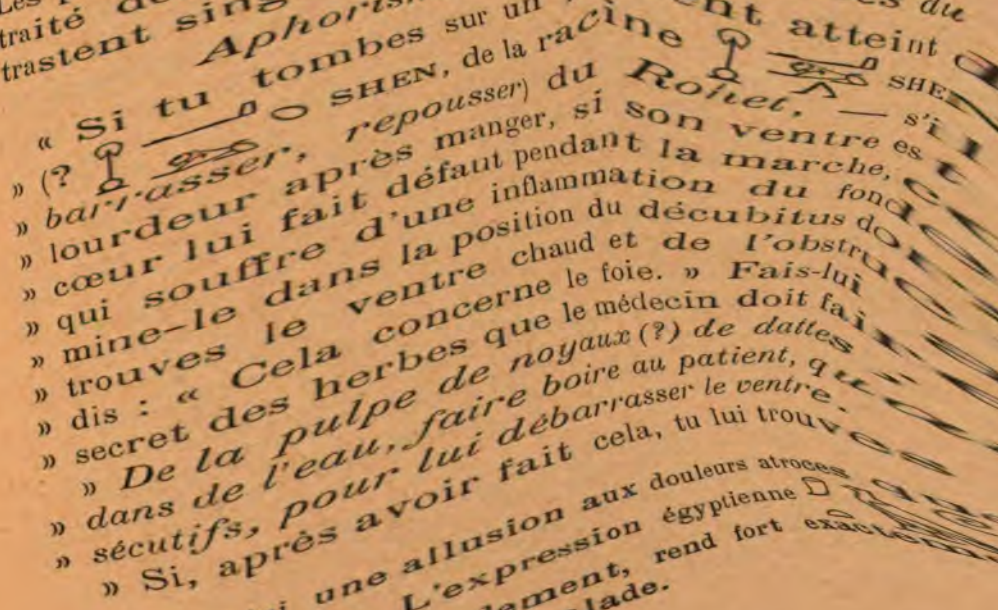 Les
traité du
trastent sing
Aphoris
« Si tu tombes sur un atteint
» (? SHEN, de la racine SHEN
» barrasser, repousser) du Rohet, — s'il
» lourdeur après manger, si son ventre est
» cœur lui fait défaut pendant la marche,
» qui souffre d'une inflammation du fond
» mine-le dans la position du décubitus do
» trouves le ventre chaud et de l'obstruc
» dis : « Cela concerne le foie. » Fais-lui
» secret des herbes que le médecin doit fair
» De la pulpe de noyaux (?) de dattes
» dans de l'eau, faire boire au patient, qu
» sécutifs, pour lui débarrasser le ventre.
» Si, après avoir fait cela, tu lui trouves
une allusion aux douleurs atroces
L'expression égyptienne
dement, rend fort exactem
lade.